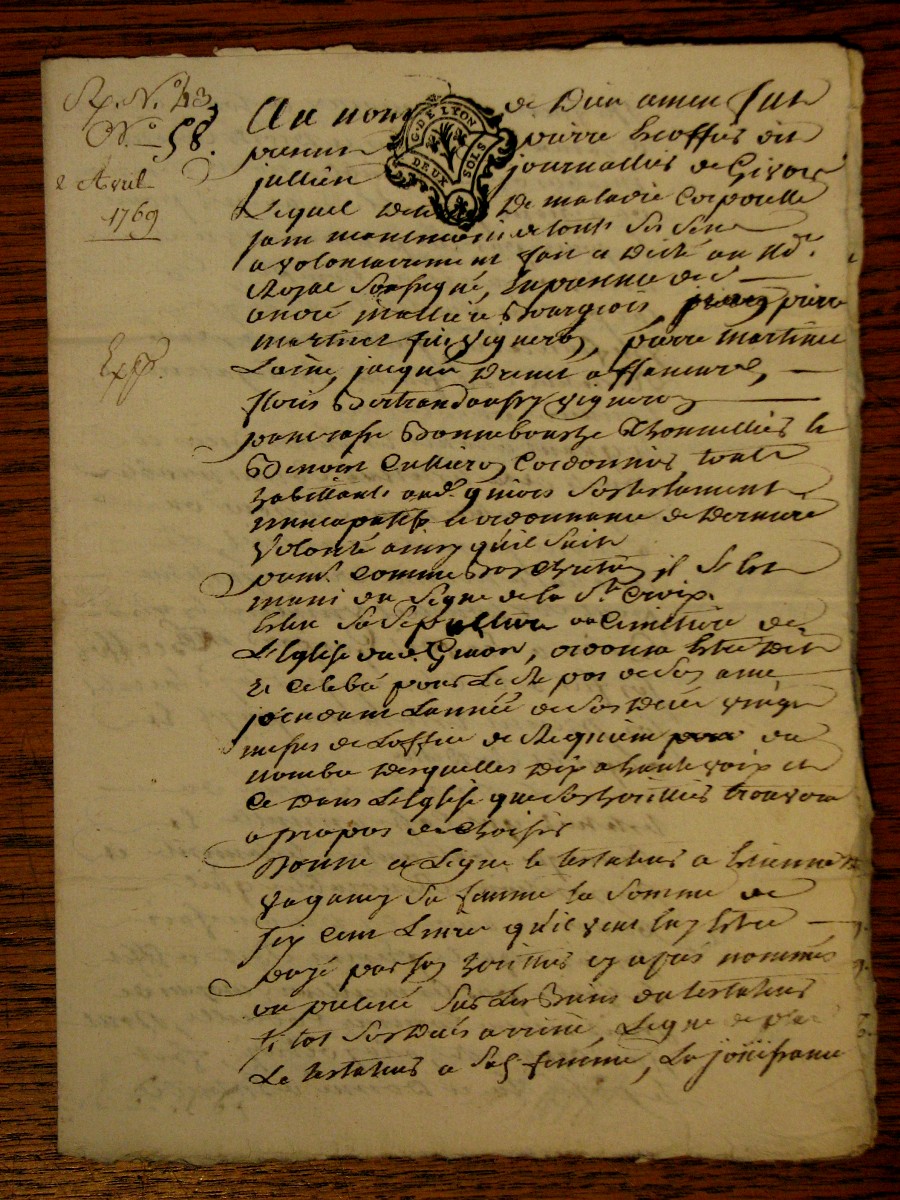 Rp. N.° 43
N.° 58.
2 Avril
1769
Exp.
Au nom de Dieu amen fut
G. DE LYON
DEUX SOLS
present pierre heoffies dit
jullien journallier de Givors
Lequel de maladie Corporelle
sain de tout ses sens
a volontairement fait a Dicté au N.re
Royal soussigné, en presence de s.
andré mallier Bourgeois, pierre
martinet fils vigneron, pierre martinet
Lainé, jacques affaneurs,
floris vigneron
pancrasse Bonnebouche Thonnellier &
Benoist Cullieron Cordonnier, touts
habittants aud. givors son testament
nuncupatif & ordonnance de derniere
volonté ainsy qu'il suit
comme bon chretien il s'est
muni du signe de la S.te Croix,
Elu sa sepulture au Cimetiere de
L'Eglise dud. Givors, ordonne Estre dit
Et Celebré pour Le repos de son ame
pendant L'année de son Deces vingt
messes de L'office de Requiem du
nombre desquelles dix a haute voix et
Ce Dans L'Eglise que son heritier trouvera
a propos de choisir
Donne & Legue le testateur a Etienne
vaganay sa femme la somme de
six Cent Livres qu'il veut luy Estre
payé par son heritier cy apres nommé
ou prelevé sur Les Biens du testateur
si tot son Deces arrivé, Legue de plus
Le testateur a sad. femme, La jouissance